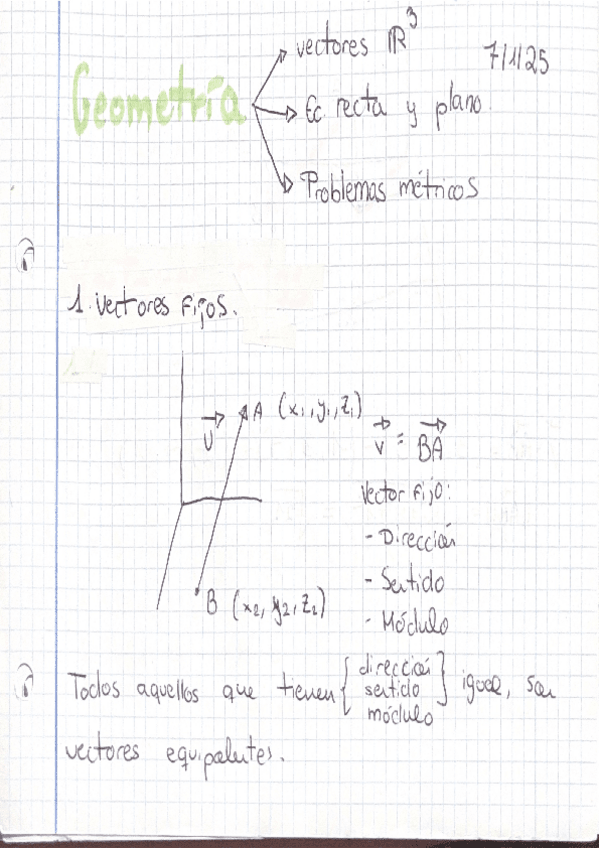 vectores ℝ³
7/1/25
Geometría
Ec recta y plano.
Problemas métricos
1. Vectores Fijos.
A (x₁, y₁, z₁)
v
v = BA
Vector Fijo:
- Dirección
- Sentido
- Módulo
B (x₂, y₂, z₂)
Todos aquellos que tienen { dirección
sentido
módulo } igual, son
vectores equipolentes.